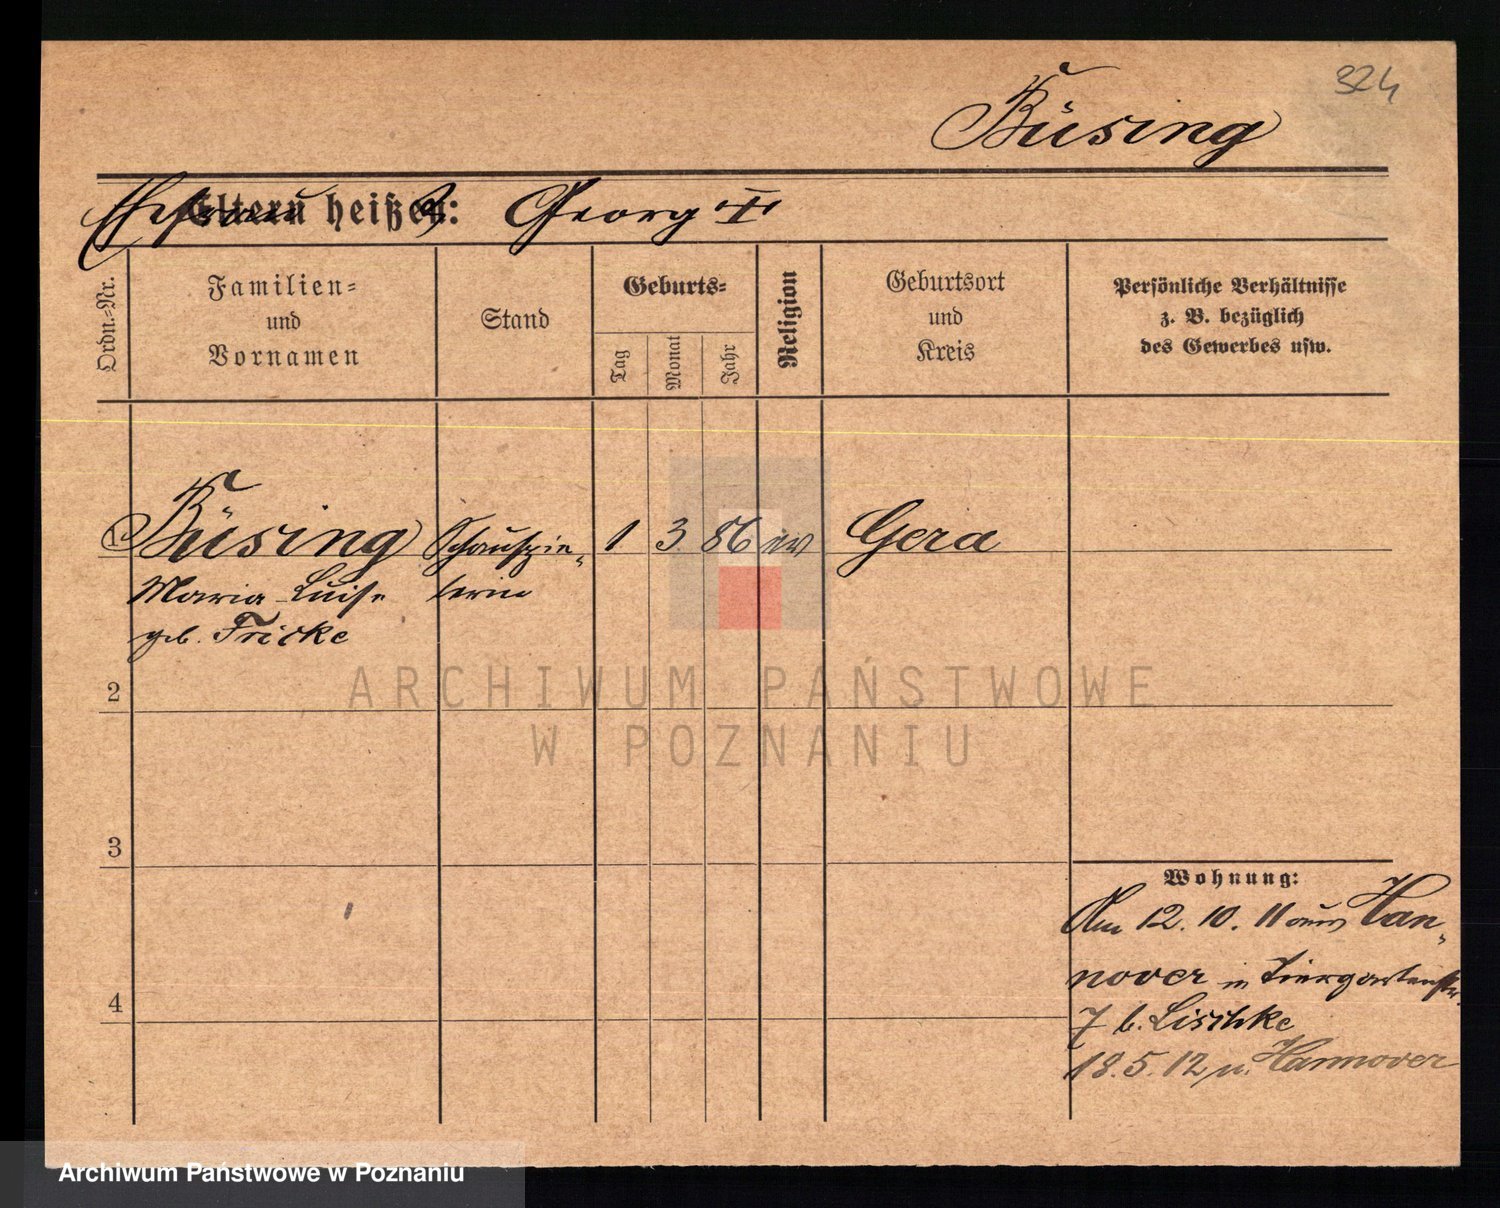 324
Büsing
Eltern heißen:
Ehefrau d. Georg I
Ordn.-Nr.
Familien-
und
Vornamen
Stand
Geburts-
Tag
Monat
Jahr
Religion
Geburtsort
und
Kreis
Persönliche Verhältnisse
z. B. bezüglich
des Gewerbes usw.
1 Büsing Schauspie- 1 3 86 ev Gera
Maria Luise lerin
geb. Fricke
2
3
4
Wohnung:
Am 12. 10. 11 aus Han-
nover in Tiergartenstr.
7 b. Lischke
18. 5. 12 n. Hannover
ARCHIWUM PAŃSTWOWE
W POZNANIU
Archiwum Państwowe w Poznaniu